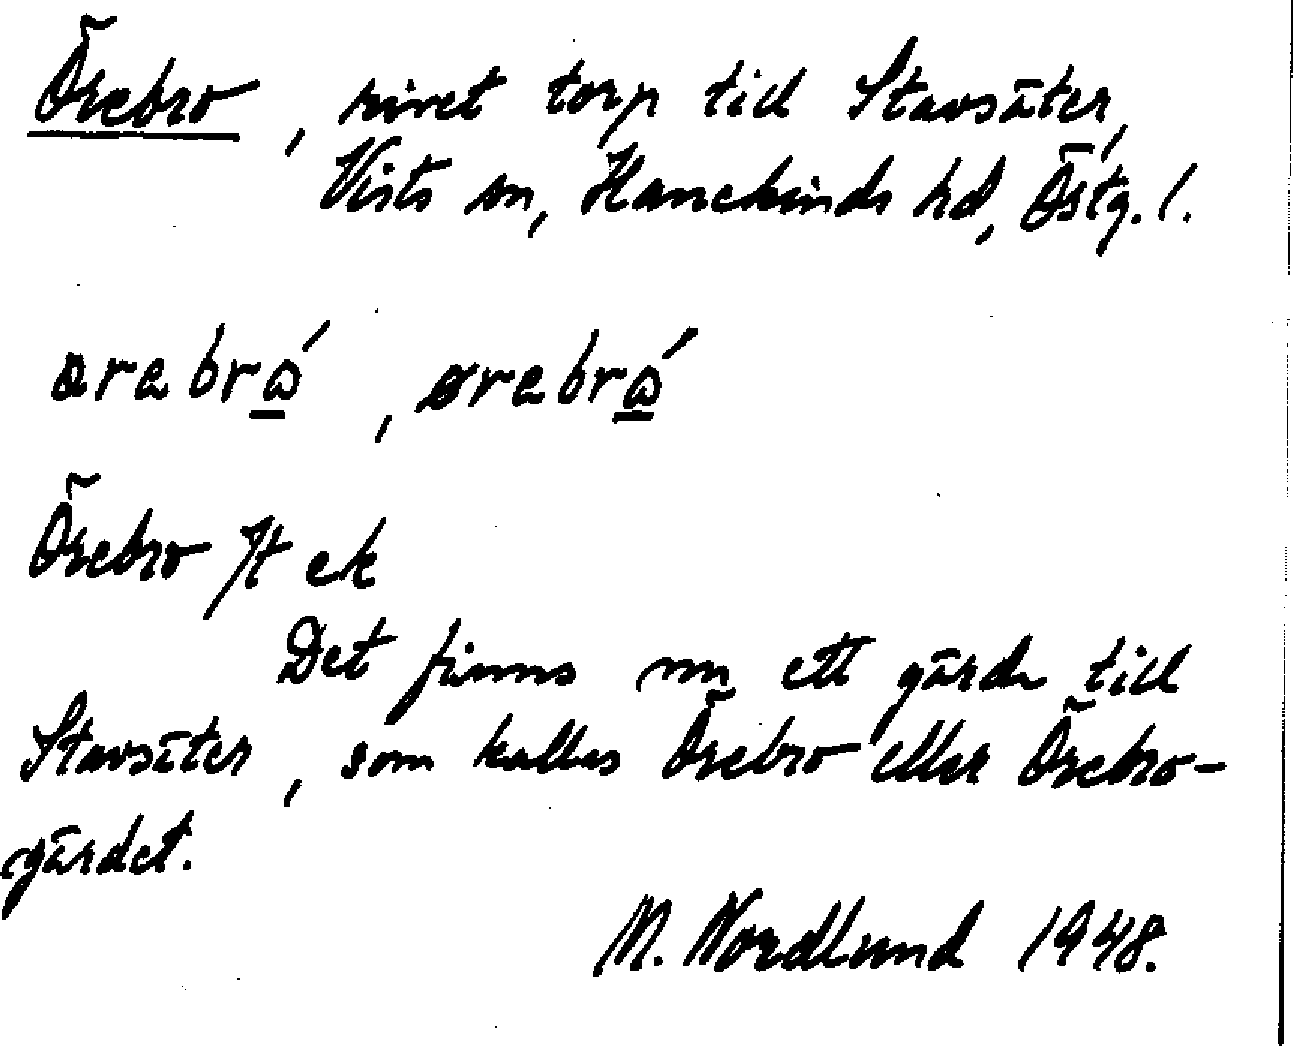 Örebro, rivet torp till Stavsäter,
Vists sn, Hanekinds hd, Östg. l.
ɷrebrɷ́, ørebrɷ́
Örebro Jt ek
Det finns nu ett gärde till
Stavsäter, som kallas Örebro eller Örebro-
gärdet.
M. Nordlund 1948.